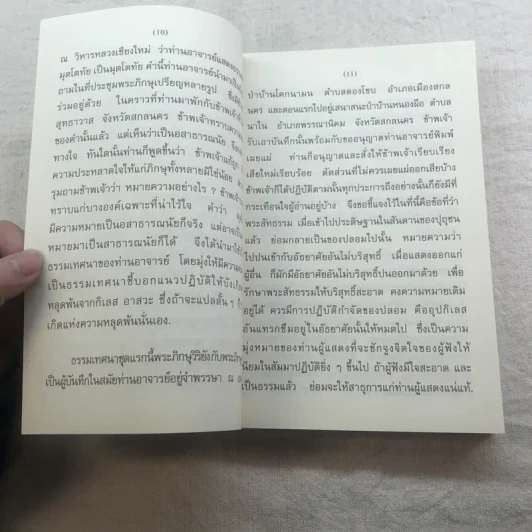 (10)
ณ วิหารหลวงเชียงใหม่ ว่าท่านอาจารย์แสดงธรรม
มุตโตทัย เป็นมุตโตทัย คำนี้อาจารย์นำมาเป็น
ถามในที่ประชุมพระภิกษุเปรียญหลายรูป ซึ่งมี
ร่วมอยู่ด้วย ในคราวที่ท่านมาพักกับข้าพเจ้า
สุทธาวาส จังหวัดสกลนคร ข้าพเจ้าทราบความ
ของคำนั้นแล้ว แต่เห็นว่าเป็นอสาธารณนัย จึง
ทางใจ ทันใดนั้นท่านก็พูดขึ้นว่า ข้าพเจ้าแก้ถูก
ความประหลาดใจให้แก่ภิกษุทั้งหลายมิใช่น้อย
รุมถามข้าพเจ้าว่า หมายความอย่างไร ? ข้าพเจ้า
ทราบแก่บางองค์เฉพาะที่น่าไว้ใจ คำว่า
มีความหมายเป็นอสาธารณนัยก็จริง แต่อาจ
หมายมาเป็นสาธารณนัยก็ได้ จึงได้นำมา
ธรรมเทศนาของท่านอาจารย์ โดยมุ่งให้มีความ
เป็นธรรมเทศนาชี้บอกแนวปฏิบัติให้บังเกิด
หลุดพ้นจากกิเลส อาสวะ ซึ่งถ้าจะแปลสั้น ๆ
เกิดแห่งความหลุดพ้นนั่นเอง.
ธรรมเทศนาชุดแรกนี้พระภิกษุวิริยังค์กับพระภิกษุ
เป็นผู้บันทึกในสมัยท่านอาจารย์อยู่จำพรรษา ณ
(11)
ป่าบ้านโคกนามน ตำบลตองโขบ อำเภอเมืองสกล
นคร และตอนแรกไปอยู่เสนาสนะป่าบ้านหนองผือ ตำบล
นาใน อำเภอพรรณานิคม จังหวัดสกลนคร ข้าพเจ้า
รับเอาบันทึกนั้นพร้อมกับขออนุญาตท่านอาจารย์พิมพ์
เผยแผ่ ท่านก็อนุญาตและสั่งให้ข้าพเจ้าเรียบเรียง
เสียใหม่เรียบร้อย ตัดส่วนที่ไม่ควรเผยแผ่ออกเสียบ้าง
ข้าพเจ้าก็ได้ปฏิบัติตามนั้นทุกประการถึงอย่างนั้นก็ยังมีที่
กระเทือนใจผู้อ่านอยู่บ้าง จึงขอชี้แจงไว้ในที่นี้คือข้อที่ว่า
พระสัทธรรม เมื่อเข้าไปประดิษฐานในสันดานของปุถุชน
แล้ว ย่อมกลายเป็นของปลอมไปนั้น หมายความว่า
ไปปนเข้ากับอัธยาศัยอันไม่บริสุทธิ์ เมื่อแสดงออกแก่
ผู้อื่น ก็มักมีอัธยาศัยอันไม่บริสุทธิ์ปนออกมาด้วย เพื่อ
รักษาพระสัทธรรมให้บริสุทธิ์สะอาด คงความหมายเดิม
อยู่ได้ ควรมีการปฏิบัติกำจัดของปลอม คืออุปกิเลส
อันแทรกซึมอยู่ในอัธยาศัยนั้นให้หมดไป ซึ่งเป็นความ
มุ่งหมายของท่านผู้แสดงที่จะชักจูงจิตใจของผู้ฟังให้
นิยมในสัมมาปฏิบัติยิ่ง ๆ ขึ้นไป ถ้าผู้ฟังมีใจสะอาด และ
เป็นธรรมแล้ว ย่อมจะให้สาธุการแก่ท่านผู้แสดงแน่แท้.